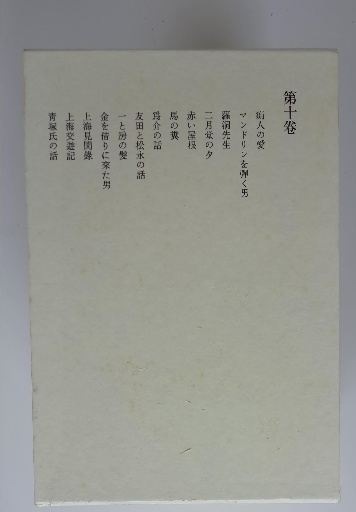 第十卷
痴人の愛
マンドリンを彈く男
蘿洞先生
二月堂の夕
赤い屋根
馬の糞
爲介の話
友田と松永の話
一と房の髮
金を借りに來た男
上海見聞錄
上海交遊記
靑塚氏の話